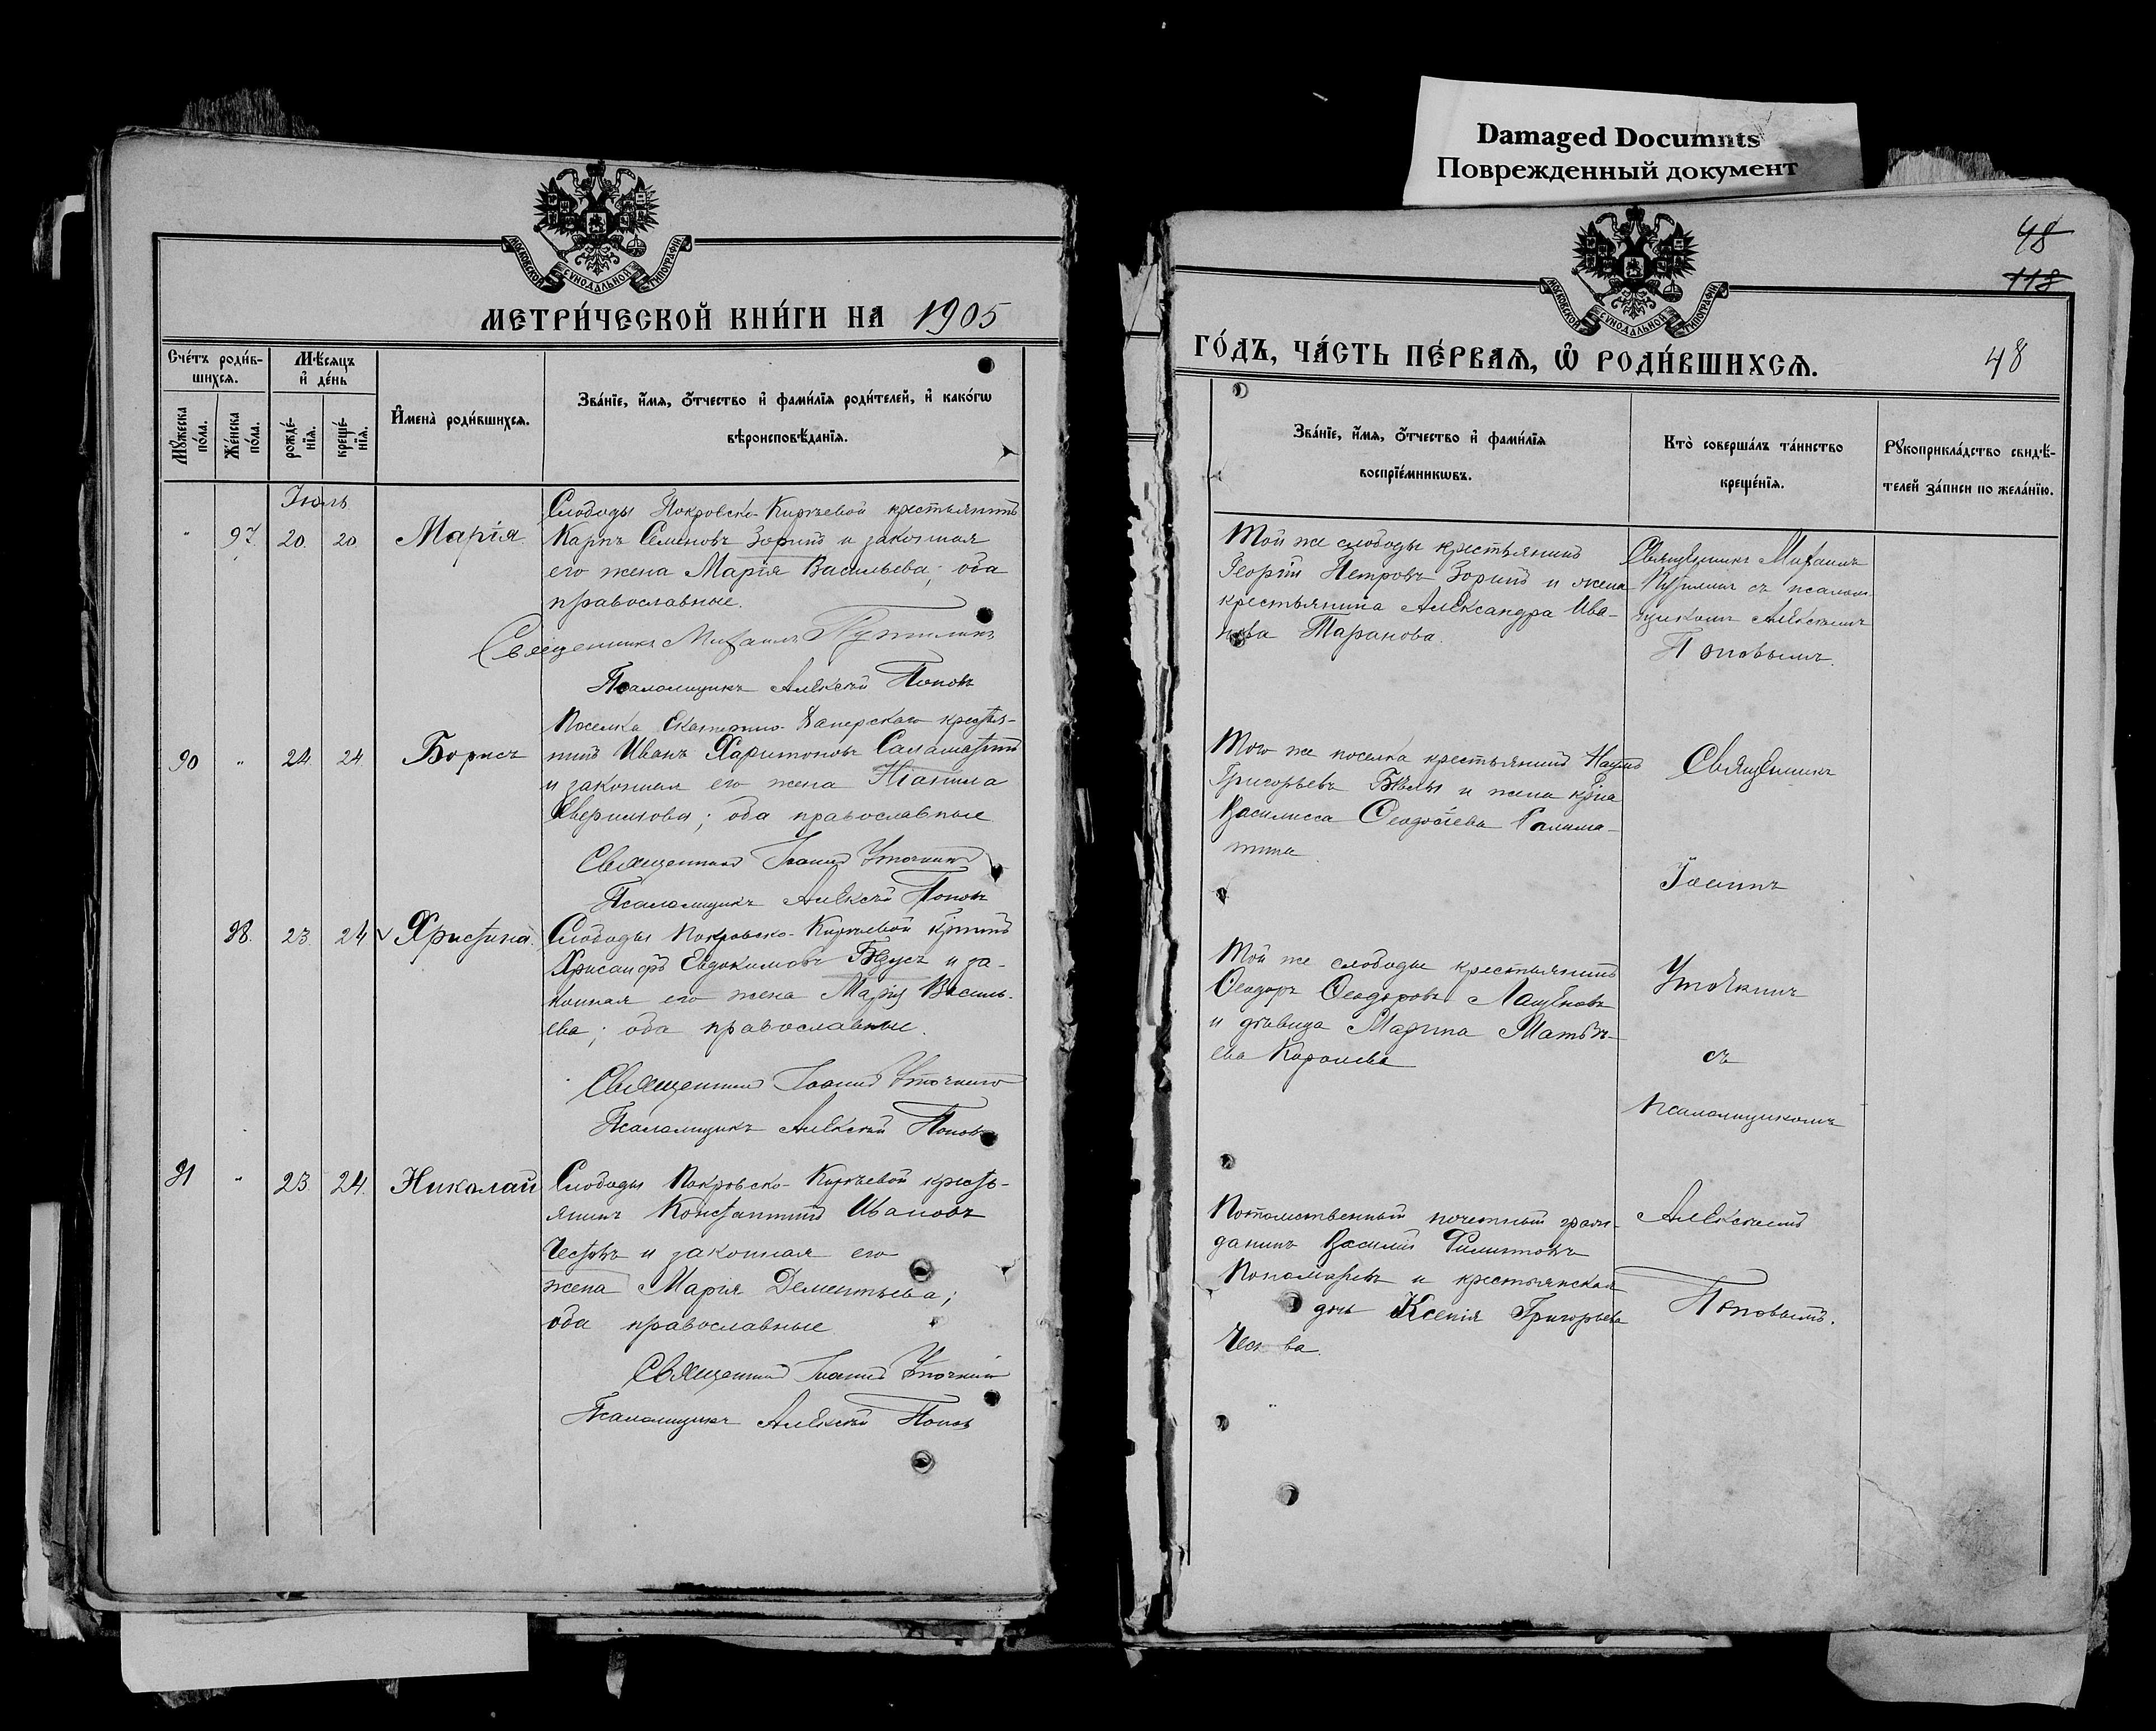 Damaged Documnts
Поврежденный документ
МОСКОВСКОЙ СУНОДАЛЬНОЙ ТИПОГРАФІИ
МЕТРИ́ЧЕСКОЙ КНИ́ГИ НА 1905
Сче́тъ роди́в-
шихсѧ.
Мꙋ́жеска по́ла.
Же́нска по́ла.
Мѣ́сяцъ и҆ де́нь
рожде́-
нїѧ.
креще́-
нїѧ.
И҆мена̀ роди́вшихсѧ.
Зва́нїе, и҆́мѧ, ѻ҆́тчество и҆ фами́лїѧ роди́телей, и҆ како́гѡ
вѣроисповѣ́данїѧ.
Іюль
" 97. 20. 20. Марія.
Слободы Покровско-Киреевой крестьянинъ
Карпъ Семеновъ Зоринъ и законная
его жена Марія Васильева; оба
православные.
Священникъ Михаилъ
Псаломщикъ Алексѣй Поповъ
90 " 24. 24. Борисъ
Поселка крестья-
нинъ Иванъ Харитоновъ
и законная его жена
; оба православные
Священникъ Іоаннъ
Псаломщикъ Алексѣй Поповъ
98. 23. 24 √ Христина.
Слободы Покровско-Киреевой кр-нинъ
Хрисанфъ Евдокимовъ и за-
конная его жена Марія Василь-
ева; оба православные.
Священникъ Іоаннъ
Псаломщикъ Алексѣй Поповъ
91 " 23. 24. Николай
Слободы Покровско-Киреевой кресть-
янинъ Константинъ Ивановъ
и законная его
жена Марія Дементьева;
оба православные
Священникъ Іоаннъ
Псаломщикъ Алексѣй Поповъ
48
118
МОСКОВСКОЙ СУНОДАЛЬНОЙ ТИПОГРАФІИ
ГО́ДЪ, ЧА́СТЬ ПЕ́РВАѦ, Ѡ҆ РОДИ́ВШИХСѦ.
48
Зва́нїе, и҆́мѧ, ѻ҆́тчество и҆ фами́лїѧ
воспрїе́мникѡвъ.
Кто̀ соверша́лъ та́инство
креще́нїѧ.
Рꙋкоприкла́дство свидѣ́-
телей за́писи по жела́нїю.
Той же слободы крестьянинъ
Георгій Петровъ Зоринъ и жена
крестьянина Александра Ива-
нова Таранова.
Священникъ Михаилъ
съ псалом
щикомъ Алексѣемъ
Поповымъ.
Того же поселка крестьянинъ Наумъ
Григорьевъ и жена кр-на
Василисса Ѳеодосіева
Священникъ
Іоаннъ
Той же слободы крестьянинъ
Ѳеодоръ Ѳеодоровъ
и дѣвица Марина Матвѣ-
ева
съ
псаломщикомъ
Потомственный почетный граж-
данинъ Василій Филипповъ
Пономаревъ и крестьянская
дочь Ксенія Григорьева
Алексѣемъ
Поповымъ.